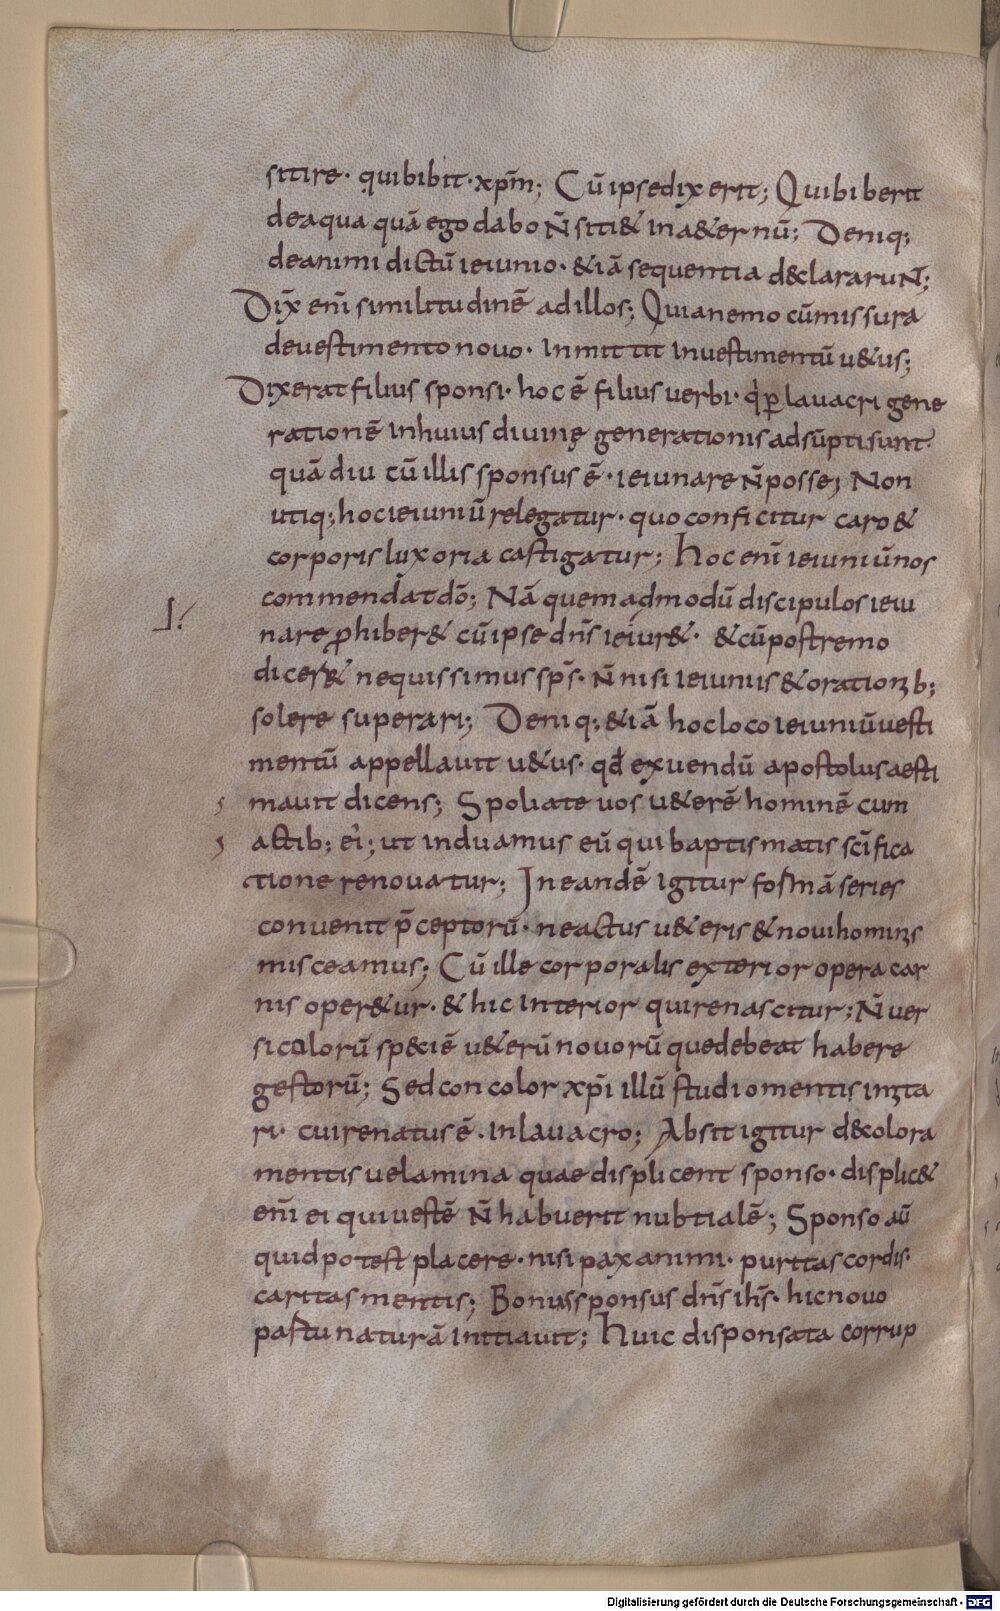 sitire· qui bibit· xp̄m; Cū ipse dixerit; Qui biberit
de aqua quā ego dabo n̄ siti& in a&ernū; Deniq;
de animi dictū ieiunio· &iā sequentia d&clararunt;
Dix̄ eni̅ similitudinē ad illos; Quia nemo cūmissura
de vestimento novo· inmittit in uestimentū u&us;
Dixerat filius sponsi· hoc ē filius uerbi· q̇ ꝑ lauacri gene
rationē in huius diuinę generationis adsūpti sunt·
quā diu cū illis sponsus ē· ieiunare n̄ posse; Non
utiq; hoc ieiuniū relegatur· quo conficitur caro &
corporis luxoria castigatur; hoc eni̅ ieiuniū nos
commendat dō; Nā quem admodū discipulos ieiu
nare ꝓhiber& cū ipse dn̄s ieiun&· & cū postremo
dicer& nequissimus sp̄s· n̄ nisi ieiuniis & orationib;
solere superari; Deniq; &iā hoc loco ieiuniū uesti
mentū appellauit u&us· qđ exuendū apostolus aesti
mauit dicens; Spoliate uos u&erē hominē cum
actib; ei; ut induamus eū qui baptismatis sc̄ifica
tione renouatur; In eandē igitur formā series
conuenit p̄ceptorū· ne actus u&eris & noui hominis
misceamus; Cū ille corporalis exterior opera car
nis oper&ur· & hic interior qui renascitur; N̄ uer
sicolorū speciē u&erū nouorū que debeat habere
gestorū; Sed concolor xp̄i illū studio mentis imita
ri· cui renatus ē· in lauacro; Absit igitur d&colora
mentis uelamina quae displicent sponso· displic&
eni̅ ei qui uestē n̄ habuerit nubtialē; Sponso aū
quid potest placere· nisi pax animi· puritas cordis·
caritas mentis; Bonus sponsus dn̄s ih̄s· hic nouo
pastu naturā initiauit; huic disponsata corrup
Digitalisierung gefördert durch die Deutsche Forschungsgemeinschaft - DFG